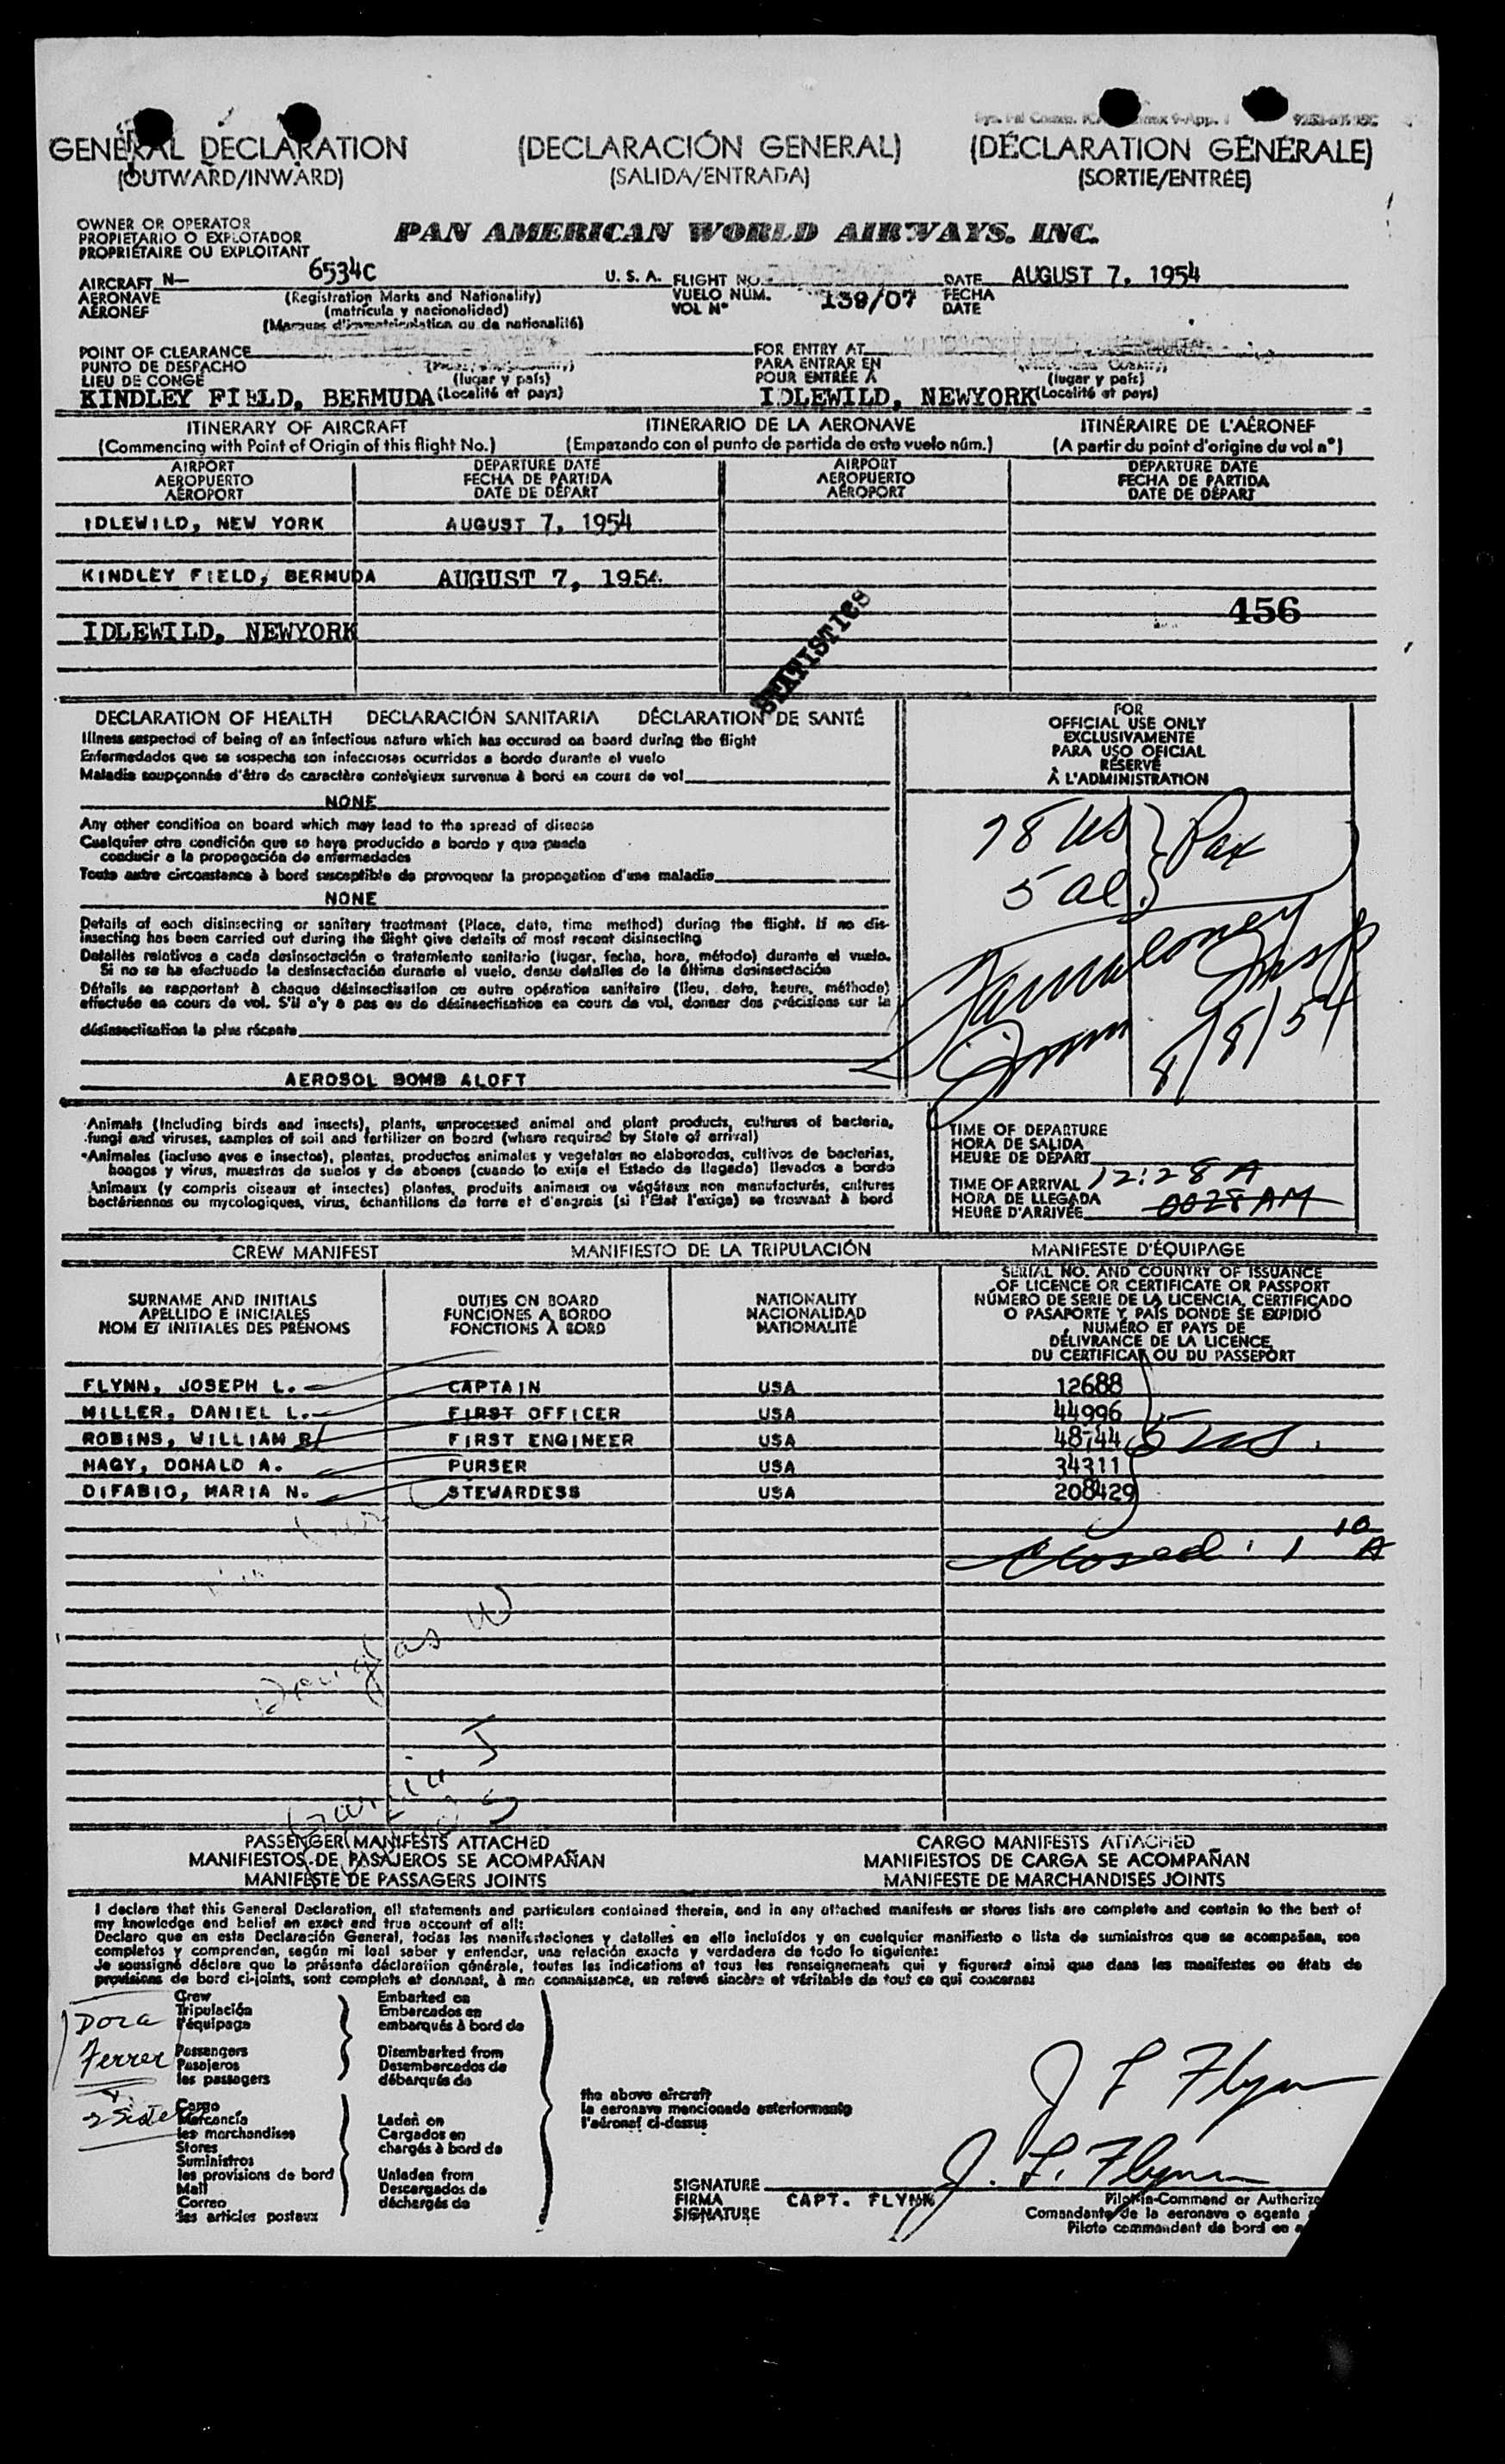 GENERAL DECLARATION
(OUTWARD/INWARD)
(DECLARACIÓN GENERAL)
(SALIDA/ENTRADA)
(DÉCLARATION GÉNÉRALE)
(SORTIE/ENTRÉE)
OWNER OR OPERATOR
PROPIETARIO O EXPLOTADOR
PROPRIÉTAIRE OU EXPLOITANT
PAN AMERICAN WORLD AIRWAYS, INC.
AIRCRAFT N— 6534C U. S. A.
AERONAVE
AÉRONEF
(Registration Marks and Nationality)
(matrícula y nacionalidad)
(Marques d'immatriculation ou de nationalité)
FLIGHT NO.
VUELO NÚM. 139/07
VOL Nº
DATE AUGUST 7, 1954
FECHA
DATE
POINT OF CLEARANCE
PUNTO DE DESPACHO
LIEU DE CONGÉ
(lugar y país)
KINDLEY FIELD, BERMUDA (Localité et pays)
FOR ENTRY AT
PARA ENTRAR EN
POUR ENTRÉE À
(lugar y país)
IDLEWILD, NEWYORK (Localité et pays)
ITINERARY OF AIRCRAFT ITINERARIO DE LA AERONAVE ITINÉRAIRE DE L'AÉRONEF
(Commencing with Point of Origin of this flight No.) (Empezando con el punto de partida de este vuelo núm.) (A partir du point d'origine du vol nº)
AIRPORT
AEROPUERTO
AÉROPORT
DEPARTURE DATE
FECHA DE PARTIDA
DATE DE DÉPART
AIRPORT
AEROPUERTO
AÉROPORT
DEPARTURE DATE
FECHA DE PARTIDA
DATE DE DÉPART
IDLEWILD, NEW YORK AUGUST 7, 1954
KINDLEY FIELD, BERMUDA AUGUST 7, 1954
456
IDLEWILD, NEWYORK
STATISTICS
DECLARATION OF HEALTH DECLARACIÓN SANITARIA DÉCLARATION DE SANTÉ
Illness suspected of being of an infectious nature which has occured on board during the flight
Enfermedades que se sospecha son infecciosas ocurridas a bordo durante el vuelo
Maladie soupçonnée d'être de caractère contagieux survenue à bord en cours de vol
NONE
Any other condition on board which may lead to the spread of disease
Cualquier otra condición que se haya producido a bordo y que pueda
conducir a la propagación de enfermedades
Toute autre circonstance à bord susceptible de provoquer la propagation d'une maladie
NONE
Details of each disinsecting or sanitary treatment (Place, date, time method) during the flight. If no dis-
insecting has been carried out during the flight give details of most recent disinsecting
Detalles relativos a cada desinsectación o tratamiento sanitario (lugar, fecha, hora, método) durante el vuelo.
Si no se ha efectuado la desinsectación durante el vuelo, dense detalles de la última desinsectación
Détails se rapportant à chaque désinsectisation ou autre opération sanitaire (lieu, date, heure, méthode)
effectuée en cours de vol. S'il n'y a pas eu de désinsectisation en cours de vol, donner des précisions sur la
désinsectisation la plus récente
AEROSOL BOMB ALOFT
FOR
OFFICIAL USE ONLY
EXCLUSIVAMENTE
PARA USO OFICIAL
RÉSERVÉ
À L'ADMINISTRATION
78 US } Pax
5 al
Insp
Imm 8/8/54
Animals (Including birds and insects), plants, unprocessed animal and plant products, cultures of bacteria,
fungi and viruses, samples of soil and fertilizer on board (where required by State of arrival)
*Animales (incluso aves e insectos), plantas, productos animales y vegetales no elaborados, cultivos de bacterias,
hongos y virus, muestras de suelos y de abonos (cuando lo exija el Estado de llegada) llevados a bordo
Animaux (y compris oiseaux et insectes) plantes, produits animaux ou végétaux non manufacturés, cultures
bactériennes ou mycologiques, virus, échantillons de terre et d'engrais (si l'État l'exige) se trouvant à bord
TIME OF DEPARTURE
HORA DE SALIDA
HEURE DE DÉPART
TIME OF ARRIVAL 12:28 A
HORA DE LLEGADA
HEURE D'ARRIVÉE 0028 AM
CREW MANIFEST MANIFIESTO DE LA TRIPULACIÓN MANIFESTE D'ÉQUIPAGE
SURNAME AND INITIALS
APELLIDO E INICIALES
NOM ET INITIALES DES PRÉNOMS
DUTIES ON BOARD
FUNCIONES A BORDO
FONCTIONS À BORD
NATIONALITY
NACIONALIDAD
NATIONALITÉ
SERIAL NO. AND COUNTRY OF ISSUANCE
OF LICENCE OR CERTIFICATE OR PASSPORT
NÚMERO DE SERIE DE LA LICENCIA, CERTIFICADO
O PASAPORTE Y PAÍS DONDE SE EXPIDIÓ
NUMÉRO ET PAYS DE
DÉLIVRANCE DE LA LICENCE,
DU CERTIFICAT OU DU PASSEPORT
FLYNN, JOSEPH L. CAPTAIN USA 12688
MILLER, DANIEL L. FIRST OFFICER USA 44996
ROBINS, WILLIAM B. FIRST ENGINEER USA 48744 5 US.
NAGY, DONALD A. PURSER USA 34311
DIFABIO, MARIA N. STEWARDESS USA 208429
Closed: 1 10 A
Douglas W
J
PASSENGER MANIFESTS ATTACHED
MANIFIESTOS DE PASAJEROS SE ACOMPAÑAN
MANIFESTE DE PASSAGERS JOINTS
CARGO MANIFESTS ATTACHED
MANIFIESTOS DE CARGA SE ACOMPAÑAN
MANIFESTE DE MARCHANDISES JOINTS
I declare that this General Declaration, all statements and particulars contained therein, and in any attached manifests or stores lists are complete and contain to the best of
my knowledge and belief an exact and true account of all:
Declaro que en esta Declaración General, todas las manifestaciones y detalles en ella incluídos y en cualquier manifiesto o lista de suministros que se acompañan, son
completos y comprenden, según mi leal saber y entender, una relación exacta y verdadera de todo lo siguiente:
Je soussigné déclare que la présente déclaration générale, toutes les indications et tous les renseignements qui y figurent ainsi que dans les manifestes ou états de
provisions de bord ci-joints, sont complets et donnent, à ma connaissance, un relevé sincère et véritable de tout ce qui concerne:
Dora
Ferrer
2 Sister
Crew
Tripulación
l'équipage
Passengers
Pasajeros
les passagers
Cargo
Mercancía
les marchandises
Stores
Suministros
les provisions de bord
Mail
Correo
les articles postaux
Embarked on
Embarcados en
embarqués à bord de
Disembarked from
Desembarcados de
débarqués de
Laden on
Cargados en
chargés à bord de
Unladen from
Descargados de
déchargés de
the above aircraft
la aeronave mencionada anteriormente
l'aéronef ci-dessus
J F Flynn
J. F. Flynn
SIGNATURE
FIRMA CAPT. FLYNN
SIGNATURE
Pilot-in-Command or Authorize
Comandante de la aeronave o agente
Pilote commandant de bord ou a